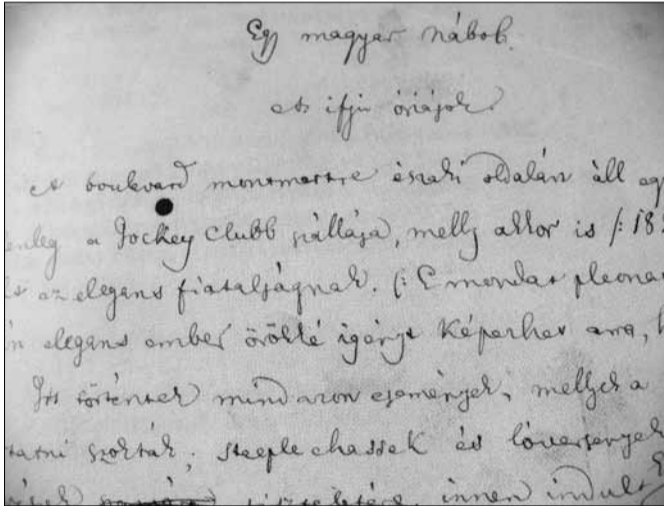 Egy magyar nábob.
Az ifju óriások.
A boulevard montmartre északi oldalán áll egy
enleg a Jockey Clubb szállása, melly akkor is /: 18
az elegans fiatalságnak. (: E mondat pleona
n elegans ember örökké igényt képezhet arra, h
Itt történtek mind azon események, mellyek a
tatni szokták, steeple chassek és lóversenyek
tiszteletére, innen indult